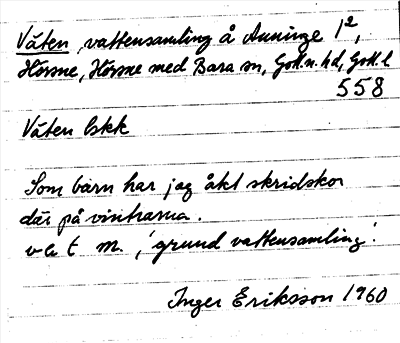 Våten, vattensamling å Anninge 1²,
Hörsne, Hörsne med Bara sn, Gotl. n. hd, Gotl. l
558
Våten lskk
Som barn har jag åkt skridskor
där på vintrarna.
våt m., 'grund vattensamling'.
Inger Eriksson 1960